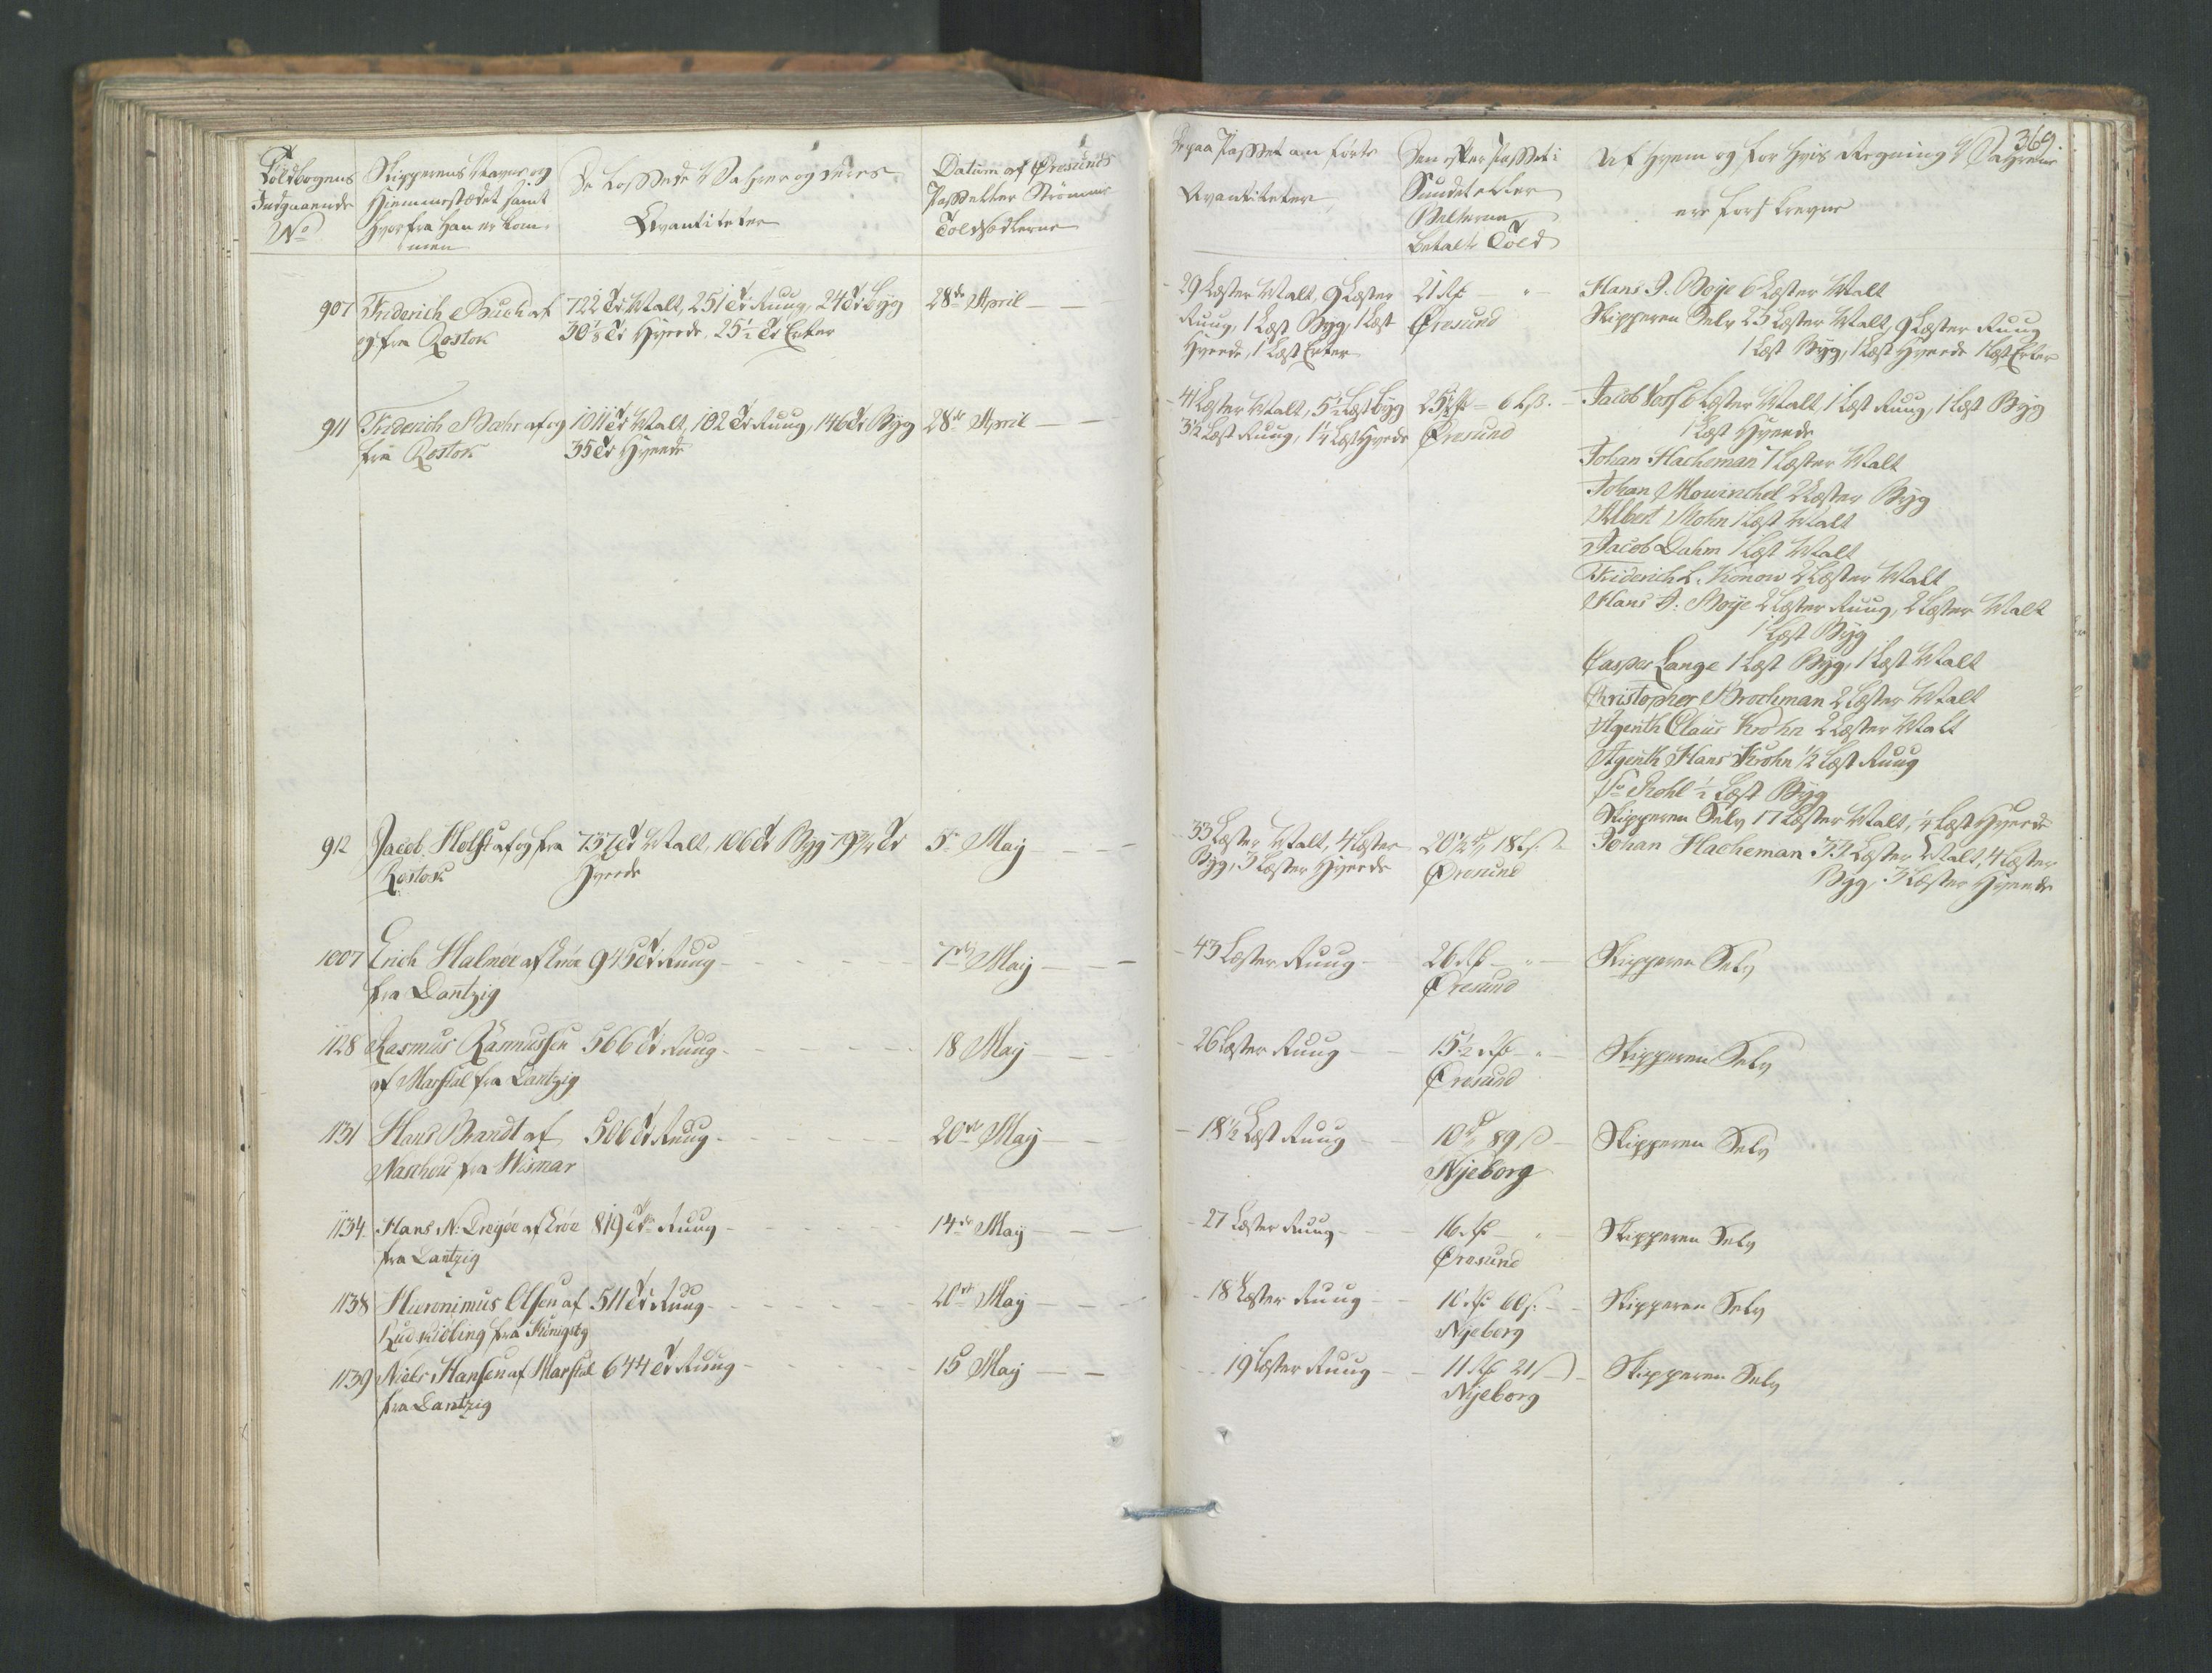 369.
Toldbogens
Indgaaende
No
Skipperens Navne og
Hiemmestædet samt
hvorfra han er kom-
men
De Lossede Vahrer og deres
Qvantiteter
Datum af Øresunds
Passet eller Strømmens
Toldsedlerne
De paa Passet anførte
Qvantiteter
Den efter Passet i
Sundet eller
Belterne
betalte Told
Af hvem og for hvis Regning Vahrene
ere forskrevne
907 Friderich Buch af
og fra Rostok
722 Tdr Malt, 251 Tdr Ruug, 24 Tdr Byg
30 1/8 Tdr Hvede, 25 1/2 Tdr Erter
28de April
29 Læster Malt, 9 Læster
Ruug, 1 Læst Byg, 1 Læst
Hvede, 1 Læst Erter
21 Rd
Øresund
Hans I. Boije 6 Læster Malt
Skipperen Selv 23 Læster Malt, 9 Læster Ruug
1 Læst Byg, 1 Læst Hvede 1 Læst Erter
911 Friderich Bahr af og
fra Rostok
1011 Tdr Malt, 102 Tdr Ruug, 146 Tdr Byg
35 Tdr Hvede
28de April
41 Læster Malt, 5 1/2 Læst Byg
3 1/2 Læst Ruug, 1 1/4 Læst Hvede
25 1/2 Rd 6 Lß.
Øresund
Jacob Foss 6 Læster Malt, 1 Læst Ruug, 1 Læst Byg
1 Læst Hvede
Johan Hacheman 7 Læster Malt
Johan Mowinchel 2 Læster Byg
Albert Mohn 1 Læst Malt
Jacob Dahm 1 Læst Malt
Friderich L. Konow 2 Læster Malt
Hans I. Boije 2 Læster Ruug, 2 Læster Malt
1 Læst Byg
Casper Lange 1 Læst Byg, 1 Læst Malt
Christopher Brochman 2 Læster Malt
Agenth Claus Krohn 2 Læster Malt
Agenth Hans Krohn 1/2 Læst Ruug
Rohl 1/2 Læst Byg
Skipperen Selv 17 Læster Malt, 1/4 Læst Hvede
912 Jacob Holst af og fra
Rostok
737 Tdr Malt, 106 Tdr Byg 79 3/4 Tdr
Hvede
5te May
33 Læster Malt, 4 Læster
Byg, 3 Læster Hvede
20 1/2 Rd 18 Lß.
Øresund
Johan Hacheman 33 Læster Malt, 4 Læster
Byg, 3 Læster Hvede
1007 Erich Halmøe af Ærøe
fra Dantzig
945 Tdr Ruug
7de May
43 Læster Ruug
26 Rd
Øresund
Skipperen Selv
1128 Rasmus Rasmussen
af Marstal fra Dantzig
566 Tdr Ruug
18 May
26 Læster Ruug
15 1/2 Rd
Øresund
Skipperen Selv
1131 Hans Brandt af
Naschou fra Wismar
506 Tdr Ruug
20de May
18 1/2 Læst Ruug
10 Rd 89 ß
Nyeborg
Skipperen Selv
1134 Hans N. Dreyøe af Ærøe
fra Dantzig
819 Tdr Ruug
14de May
27 Læster Ruug
16 Rd
Øresund
Skipperen Selv
1138 Hieronimus Olsen af
Rudkiøbing fra Königsbg
511 Tdr Ruug
20de May
18 Læster Ruug
10 Rd 60 ß.
Nyeborg
Skipperen Selv
1139 Niels Hansen af Marstal
fra Dantzig
644 Tdr Ruug
15 May
19 Læster Ruug
11 Rd 21 ß
Nyeborg
Skipperen Selv